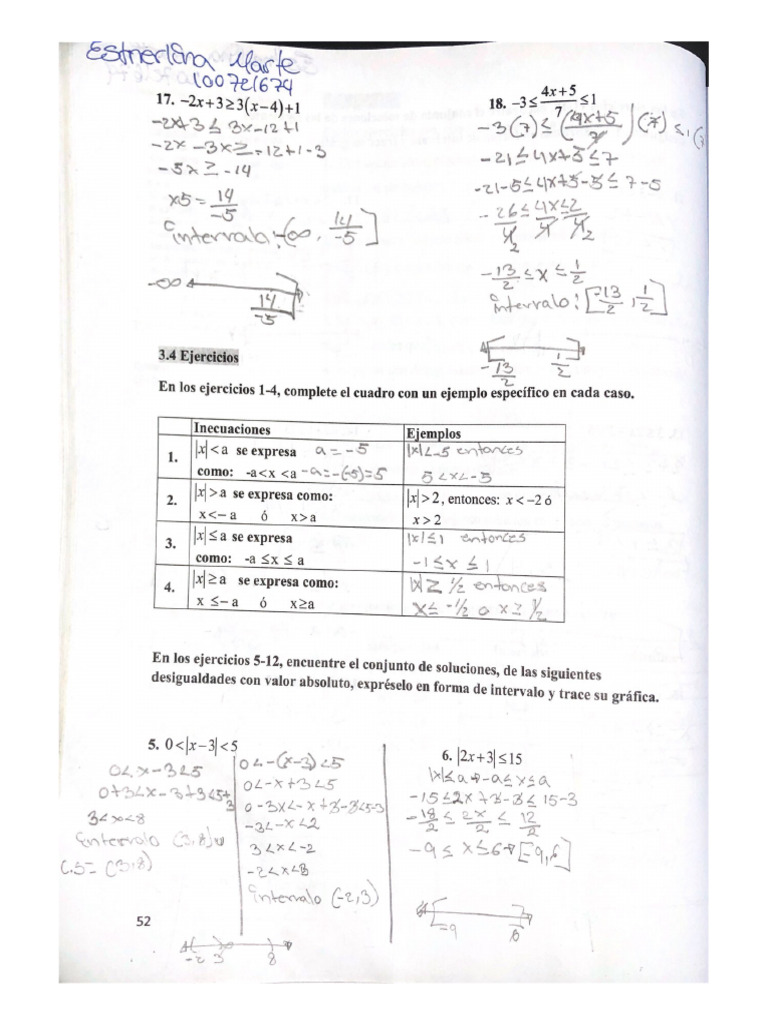 Estherlina Marte
100721674
17. -2x+3≥3(x-4)+1
-2x+3 ≤ 3x-12+1
-2x -3x ≥ -12+1-3
-5x ≥ -14
x5 = 14/-5
intervalo:(-∞, 14/-5]
-∞
14/-5
18. -3≤ (4x+5)/7 ≤1
-3(7) ≤ ((4x+5)/7)(7) ≤ 1(7
-21 ≤ 4x+5 ≤ 7
-21-5 ≤ 4x+5-5 ≤ 7-5
-26/4 2 ≤ 4x/4 ≤ 2/4 2
-13/2 ≤ x ≤ 1/2
intervalo: [-13/2, 1/2]
-13/2 1/2
3.4 Ejercicios
En los ejercicios 1-4, complete el cuadro con un ejemplo específico en cada caso.
Inecuaciones Ejemplos
1. |x|<a se expresa a = -5 |x|<-5 entonces
como: -a<x <a -a=-(-5)=5 5 <x<-5
2. |x|>a se expresa como: |x|>2, entonces: x<-2 ó
x<-a ó x>a x>2
3. |x|≤a se expresa |x|≤1 entonces
como: -a ≤x ≤ a -1≤x ≤ 1
4. |x|≥a se expresa como: |x|≥ 1/2 entonces
x ≤-a ó x≥a x≤ -1/2 o x≥ 1/2
En los ejercicios 5-12, encuentre el conjunto de soluciones, de las siguientes
desigualdades con valor absoluto, expréselo en forma de intervalo y trace su gráfica.
5. 0<|x-3|<5
0<x-3<5
0+3<x-3+3<5+3
3<x<8
intervalo (3,8)u
C.S= (3,8)
0<-(x-3)<5
0<-x+3<5
0-3x<-x+3-3<5-3
-3<-x<2
3<x<-2
-2<x<8
intervalo (-2,3)
-2 3 8
6. |2x+3|≤15
|x|≤a → -a≤x≤a
-15≤2x+3-3≤ 15-3
-18/2 ≤ 2x/2 ≤ 12/2
-9 ≤ x ≤6→[-9,6]
-9 6
52